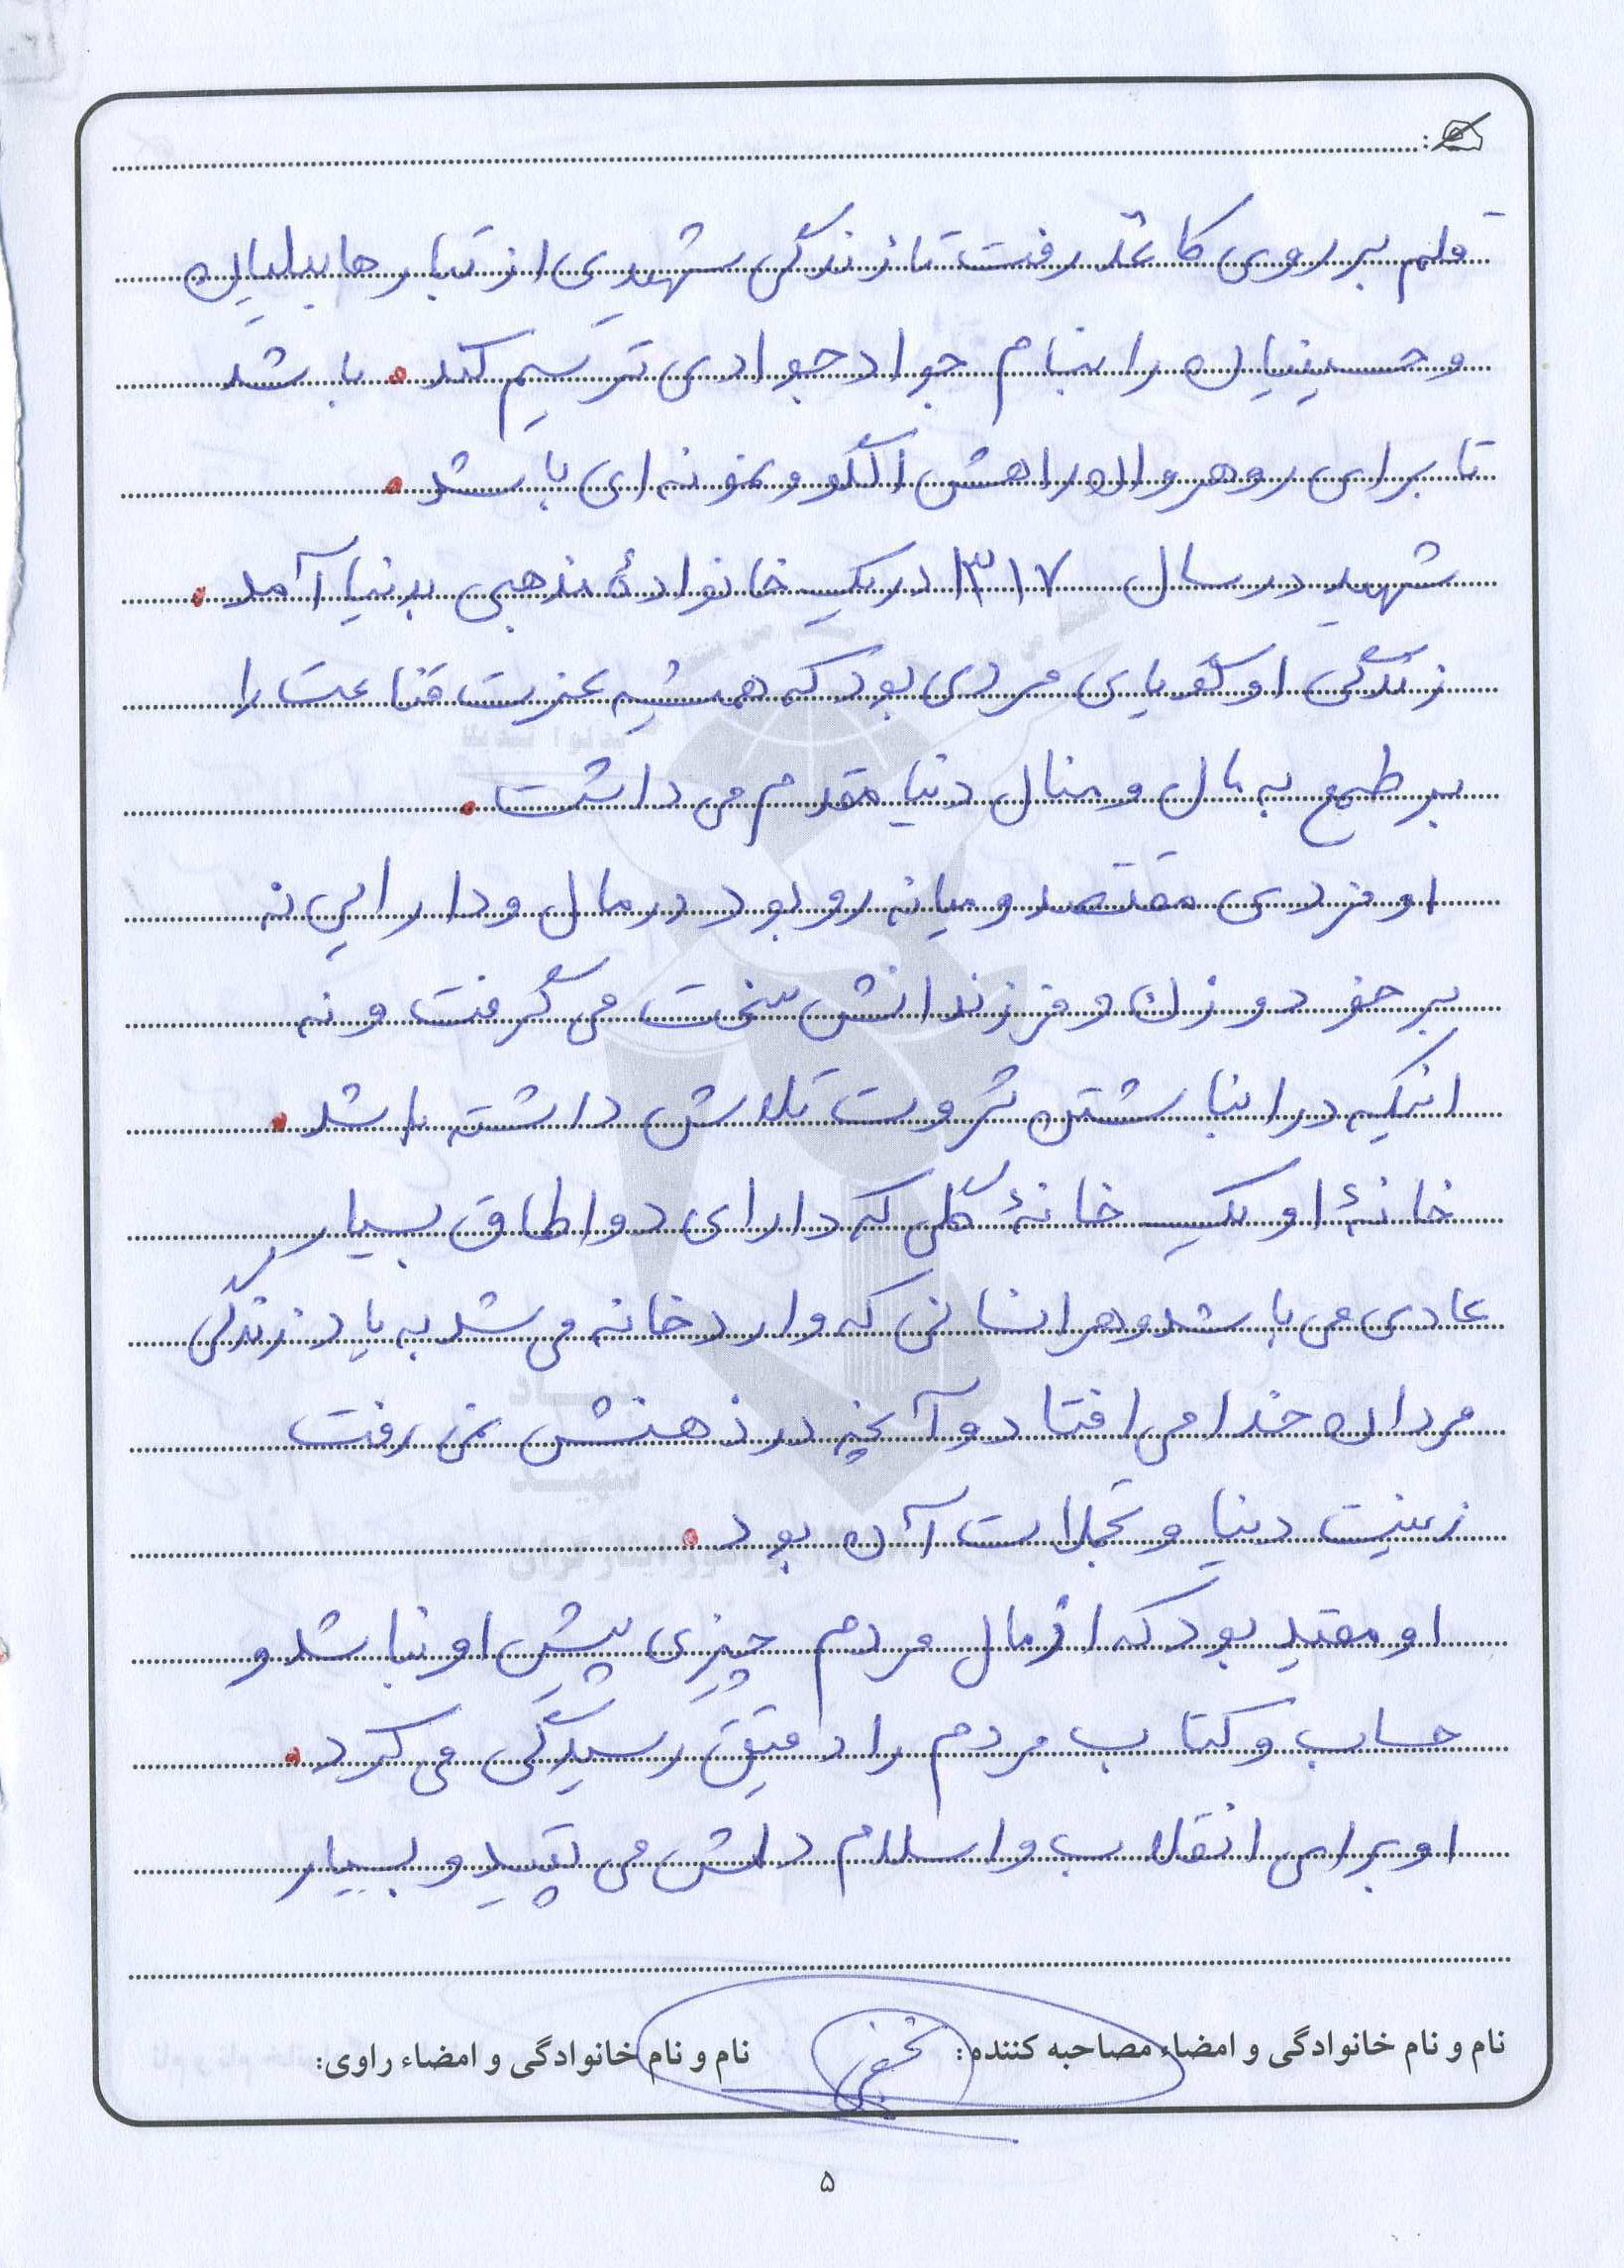 قلم بر روی کاغذ رفت تا زندگی شهیدی از تبار هابیلیان
و حسینیان را بنام جواد جوادی ترسیم کند. باشد
تا برای روهروان راهش الگو و نمونه ای باشد.
شهید در سال ۱۳۱۷ در یک خانوادهٔ مذهبی بدنیا آمد.
زندگی او گویای مردی بود که همیشه عزت قناعت را
بر طمع به مال و منال دنیا مقدم می داشت.
او فردی مقتصد و میانه رو بود در مال و دارایی نه
بر خود و زن و فرزندانش سخت می گرفت و نه
اینکه در انباشتن ثروت تلاش داشته باشد.
خانهٔ او یک خانهٔ گلی که دارای دو اطاق بسیار
عادی می باشد و هر انسانی که وارد خانه می شد به یاد زندگی
مردان خدا می افتاد و آنچه در ذهنش نمی رفت
زینت دنیا و تجملات آن بود.
او مقید بود که از مال مردم چیزی پیش او نباشد و
حساب و کتاب مردم را دقیق رسیدگی می کرد.
او برای انقلاب و اسلام دلش می تپید و بسیار
نام و نام خانوادگی و امضاء مصاحبه کننده: نام و نام خانوادگی و امضاء راوی:
۵